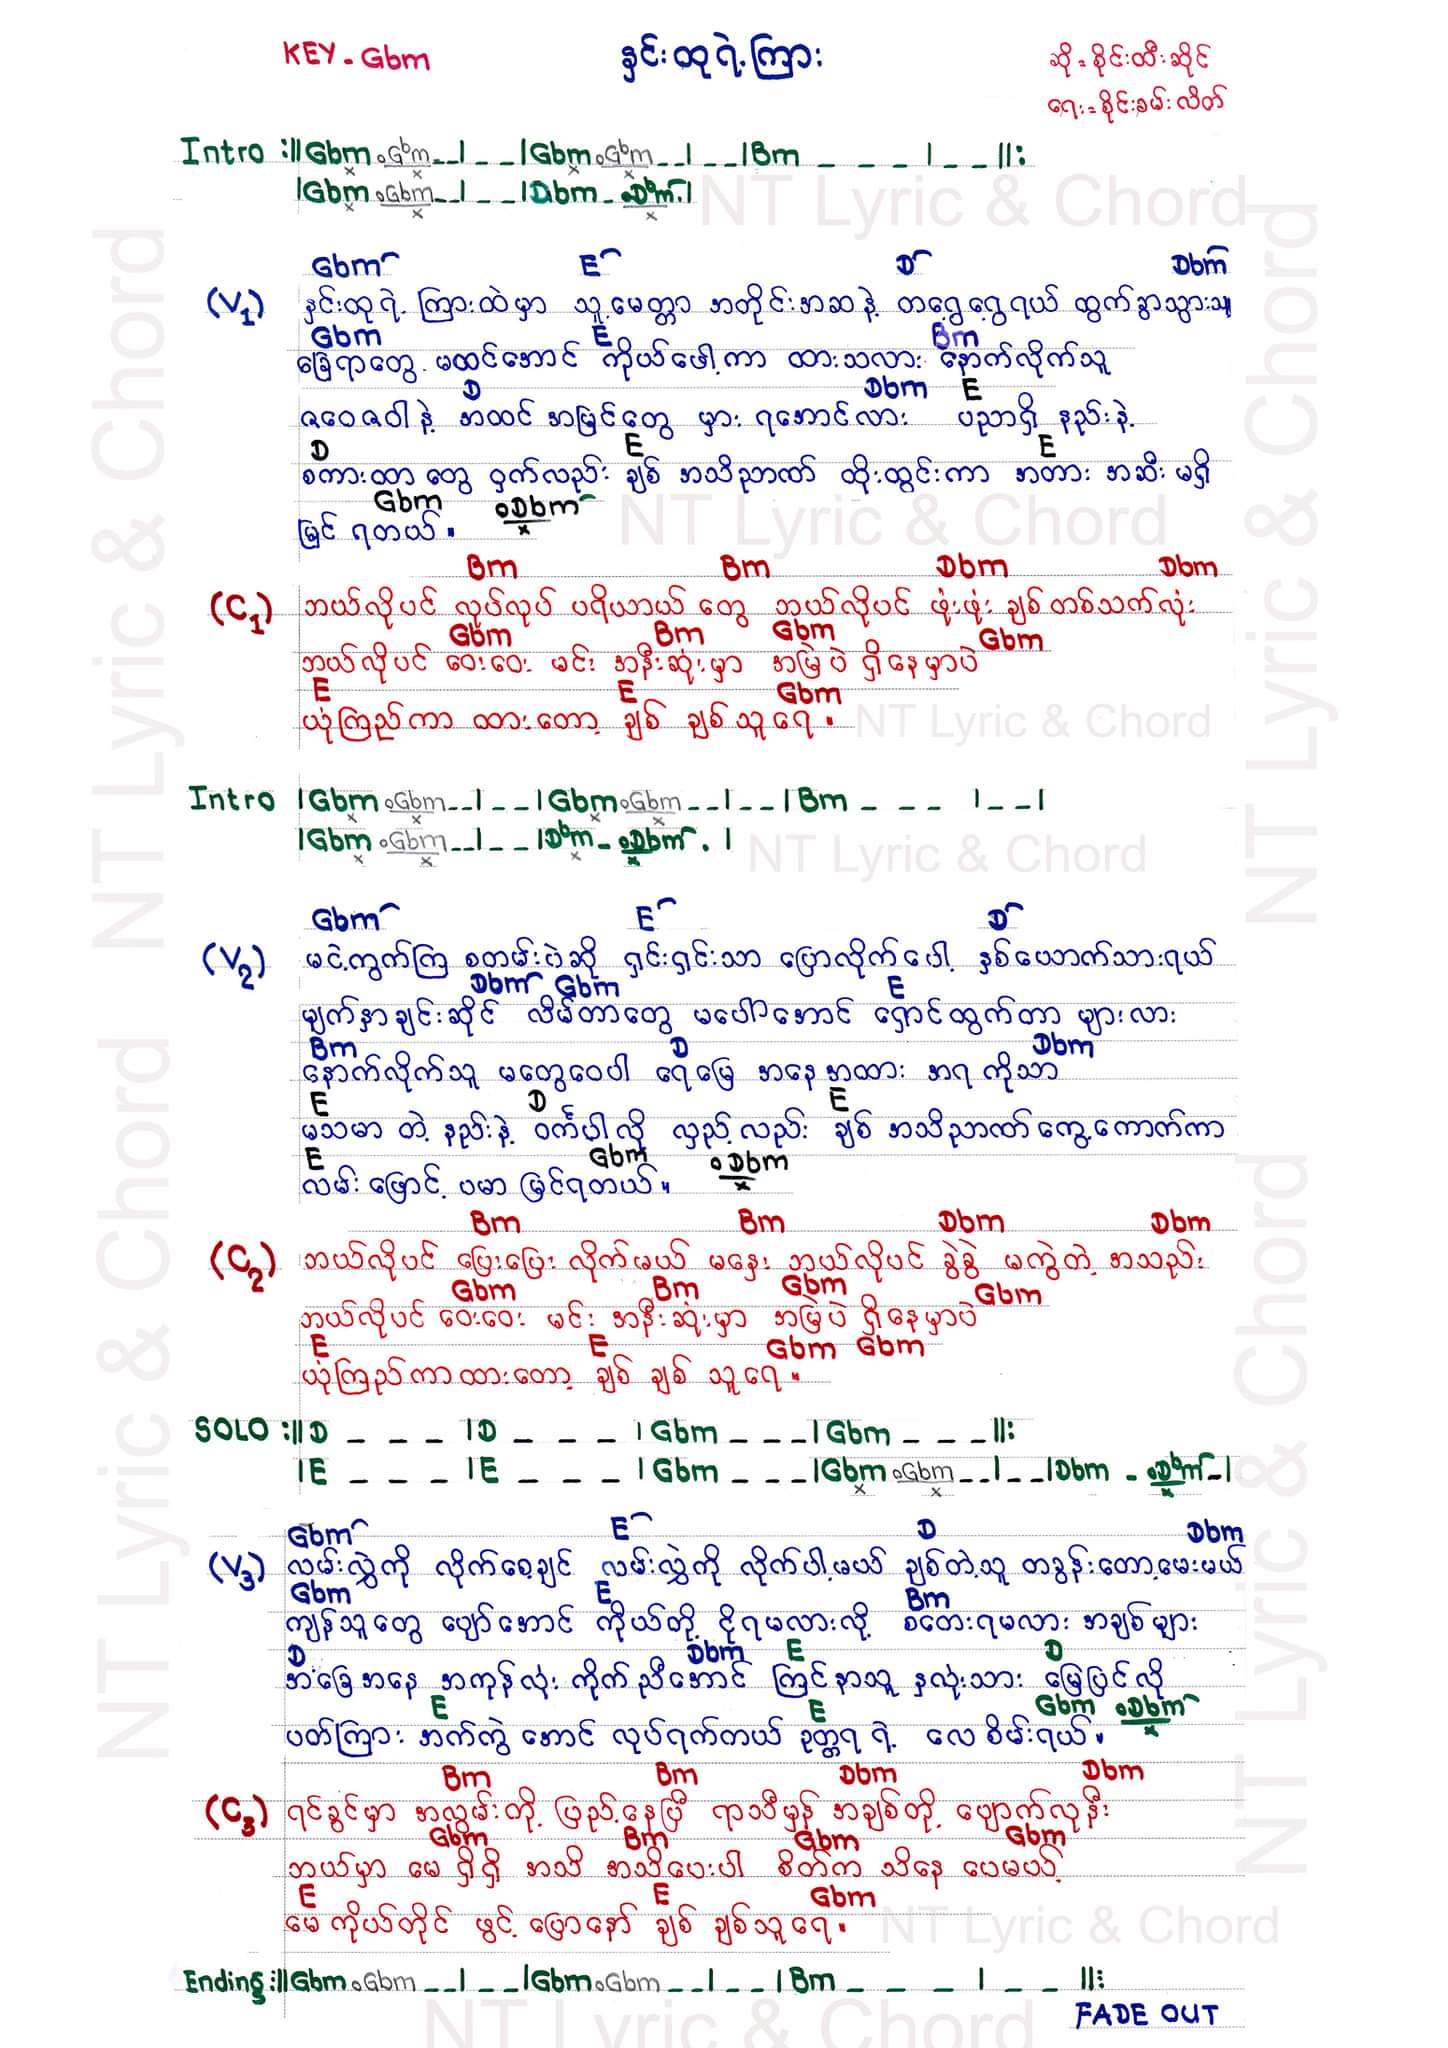 KEY - Gbm
နှင်းထုရဲ့ကြား
ဆို = စိုင်းထီးဆိုင်
ရေး = စိုင်းခမ်းလိတ်
Intro :|| Gbm . Gbm _ _ | _ _ | Gbm . Gbm _ _ | _ _ | Bm _ _ _ | _ _ ||:
| Gbm . Gbm _ _ | _ _ | Dbm - . Dbm . |
NT Lyric & Chord
Gbm E D Dbm
(V1) နှင်းထုရဲ့ ကြားထဲမှာ သူ့မေတ္တာ အတိုင်းအဆနဲ့ တရွေ့ရွေ့ရယ် ထွက်ခွာသွားသူ
Gbm E Bm
ခြေရာတွေ မထင်အောင် ကိုယ်ဖေါ့ကာ ထားသလား နောက်လိုက်သူ
D Dbm E
ဇဝေဇဝါနဲ့ အထင် အမြင်တွေ မှား ရအောင်လား ပညာရှိ နည်းနဲ့
D E E
စကားထာ တွေ ဝှက်လည်း ချစ် အသိဉာဏ် ထိုးထွင်းကာ အတား အဆီး မရှိ
Gbm . Dbm
မြင် ရတယ်။
NT Lyric & Chord
Bm Bm Dbm Dbm
(C1) ဘယ်လိုပင် လှုပ်လှုပ် ပရိယာယ် တွေ ဘယ်လိုပင် ဖုံးဖုံး ချစ် တစ်သက်လုံး
Gbm Bm Gbm Gbm
ဘယ်လိုပင် ဝေးဝေး မင်း အနီးဆုံးမှာ အမြဲပဲ ရှိနေမှာပဲ
E E Gbm
ယုံကြည်ကာ ထားတော့ ချစ် ချစ်သူရေ။
NT Lyric & Chord
Intro | Gbm . Gbm _ _ | _ _ | Gbm . Gbm _ _ | _ _ | Bm _ _ _ | _ _ |
| Gbm . Gbm _ _ | _ _ | Dbm - . Dbm . |
NT Lyric & Chord
Gbm E D
(V2) မငဲ့ကွက်ကြ စတမ်းပဲဆို ရှင်းရှင်းသာ ပြောလိုက်ပေါ့ နှစ်ယောက်သားရယ်
Dbm Gbm E
မျက်နှာချင်းဆိုင် လိမ်တာတွေ မပေါ်အောင် ရှောင်ထွက်တာ များလား
Bm D Dbm
နောက်လိုက်သူ မတွေဝေပါ ရေမြေ အနေအထား အရ ကိုသာ
E D E
မသမာ တဲ့ နည်းနဲ့ ဝင်္ကပါလို လှည့်လည်း ချစ် အသိဉာဏ်ကွေ့ကောက်ကာ
E Gbm . Dbm
လမ်း ဖြောင့် ပမာ မြင်ရတယ်။
Bm Bm Dbm Dbm
(C2) ဘယ်လိုပင် ပြေးပြေး လိုက်မယ် မနှေး ဘယ်လိုပင် ခွဲခွဲ မကွဲတဲ့ အသည်း
Gbm Bm Gbm Gbm
ဘယ်လိုပင် ဝေးဝေး မင်း အနီးဆုံးမှာ အမြဲပဲ ရှိနေမှာပဲ
E E Gbm Gbm
ယုံကြည်ကာထားတော့ ချစ် ချစ် သူရေ။
SOLO :|| D _ _ _ | D _ _ _ | Gbm _ _ _ | Gbm _ _ _ ||:
| E _ _ _ | E _ _ _ | Gbm _ _ _ | Gbm . Gbm _ _ | _ _ | Dbm - . Dbm - |
Gbm E D Dbm
(V3) လမ်းလွှဲကို လိုက်စေ့ချင် လမ်းလွှဲကို လိုက်ပါ့မယ် ချစ်တဲ့သူ တခွန်းတော့မေးမယ်
Gbm E Bm
ကျန်သူတွေ ပျော်အောင် ကိုယ်တို့ ငိုရမလားလို့ စတေးရမလား အချစ်များ
D Dbm E D
အခြေအနေ အကုန်လုံး ကိုက်ညီအောင် ကြင်နာသူ နှလုံးသား မြေပြင်လို
E E Gbm . Dbm
ပတ်ကြား အက်ကွဲ အောင် လုပ်ရက်တယ် ဥတ္တရ ရဲ့ လေစိမ်းရယ်။
Bm Bm Dbm Dbm
(C3) ရင်ခွင်မှာ အလွမ်းတို့ ပြည့်နေပြီ ရာသီမှန် အချစ်တို့ ပျောက်လုနီး
Gbm Bm Gbm Gbm
ဘယ်မှာ မေ ရှိရှိ အသိ အသိပေးပါ စိတ်က သိနေ ပေမယ့်
E E Gbm
မေ ကိုယ်တိုင် ဖွင့် ပြောနော် ချစ် ချစ်သူရေ။
NT Lyric & Chord
Ending :|| Gbm . Gbm _ _ | _ _ | Gbm . Gbm _ _ | _ _ | Bm _ _ _ | _ _ ||:
FADE OUT
NT Lyric & Chord